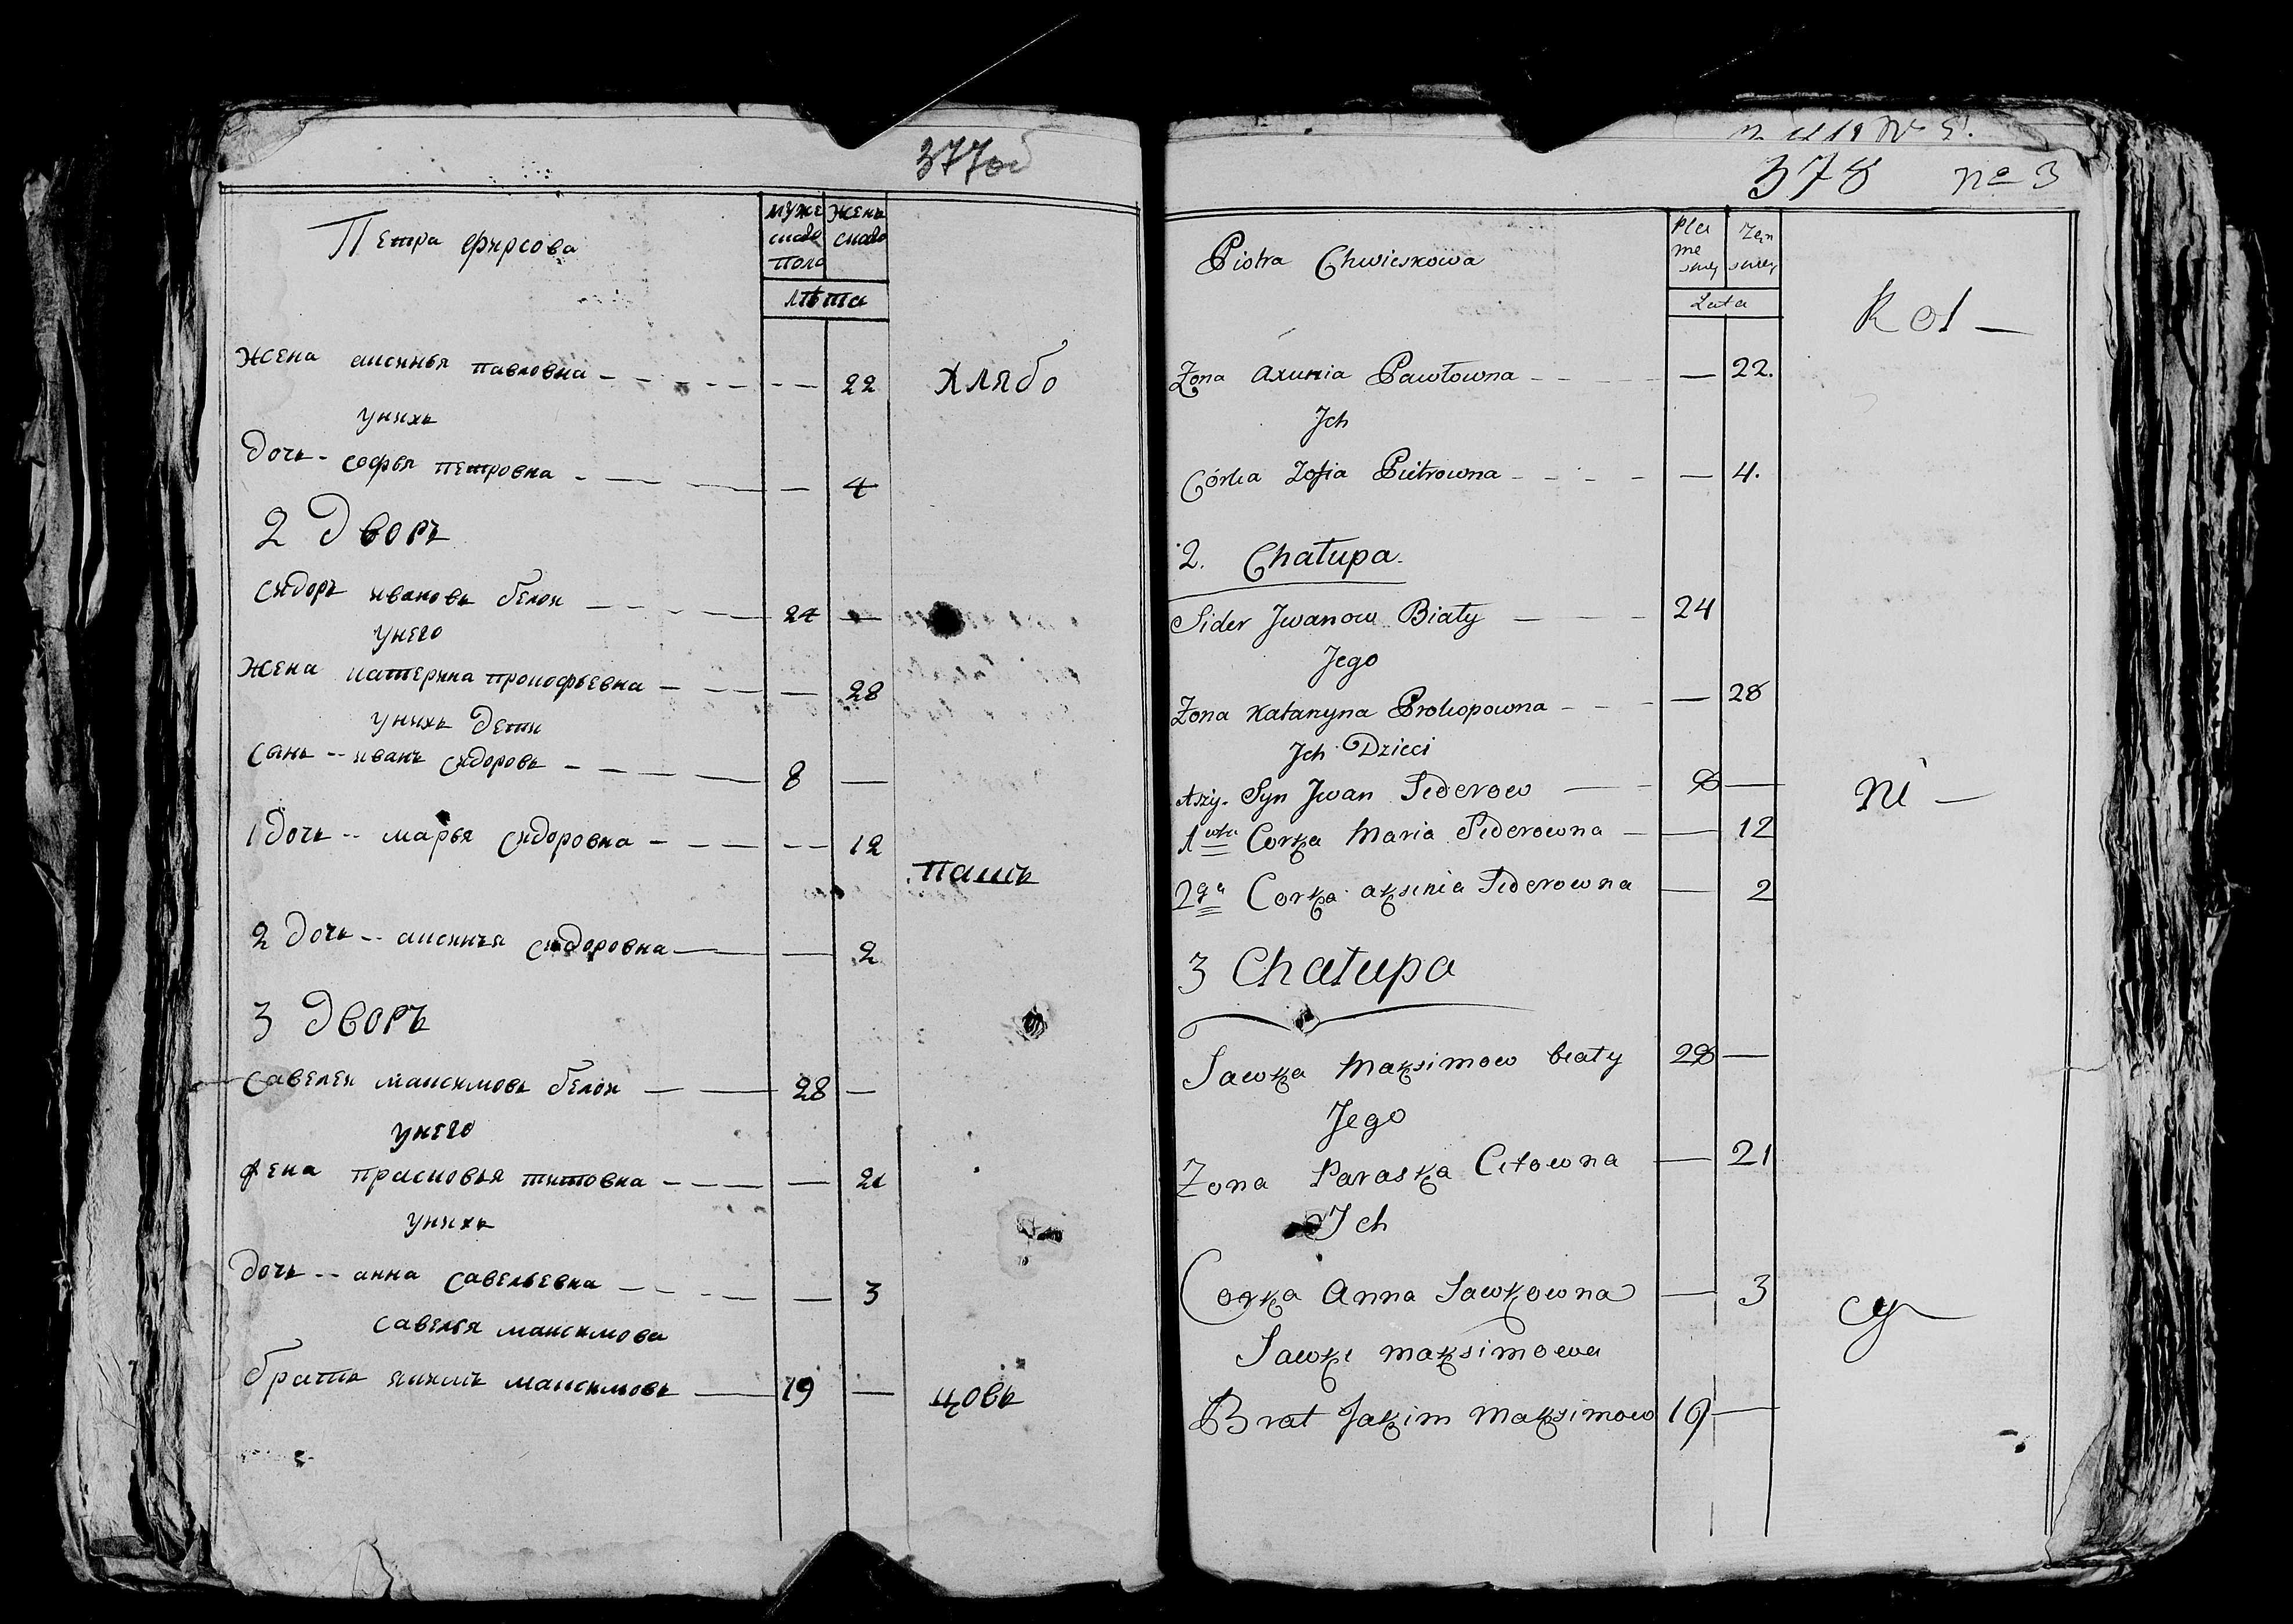 377об
Петра фирсова
МУЖЕ
скаго
Пола
Женъ
скаго
лѣта
жена аксинья павловна 22
хлябо
унихъ
дочь софья петровна 4
2 Дворъ
сидоръ ивановъ белои 24
унего
жена катерина прокофьевна 28
унихъ дети
сынъ иванъ сидоровъ 8
1 дочь марья сидоровна 12
пашъ
2 дочь аксинья сидоровна 2
3 Дворъ
савелеи максимовъ белои 28
унего
жена прасковья титовна 21
унихъ
дочь анна савельевна 3
савелья максимова
братъ якимъ максимовъ 19
цовъ
378 No 3
Piotra Chwieskowa
Lata
Kol
Zona Axunia Pawłowna 22.
Jch
Córka Zofia Pietrowna 4.
2. Chałupa.
Sider Jwanow Biały 24
Jego
Zona Katarzyna Prokopowna 28
Jch Dzieci
Syn Jwan Siderow 8
ni
1 Corka Maria Siderowna 12
2ga Corka aksinia Siderowna 2
3 Chałupa
Sawka Maksimow biały 28
Jego
Zona Paraska Citowna 21
Jch
Corka Anna Sawkowna 3
cy
Sawki maksimowa
Brat Jakim Maksimow 19